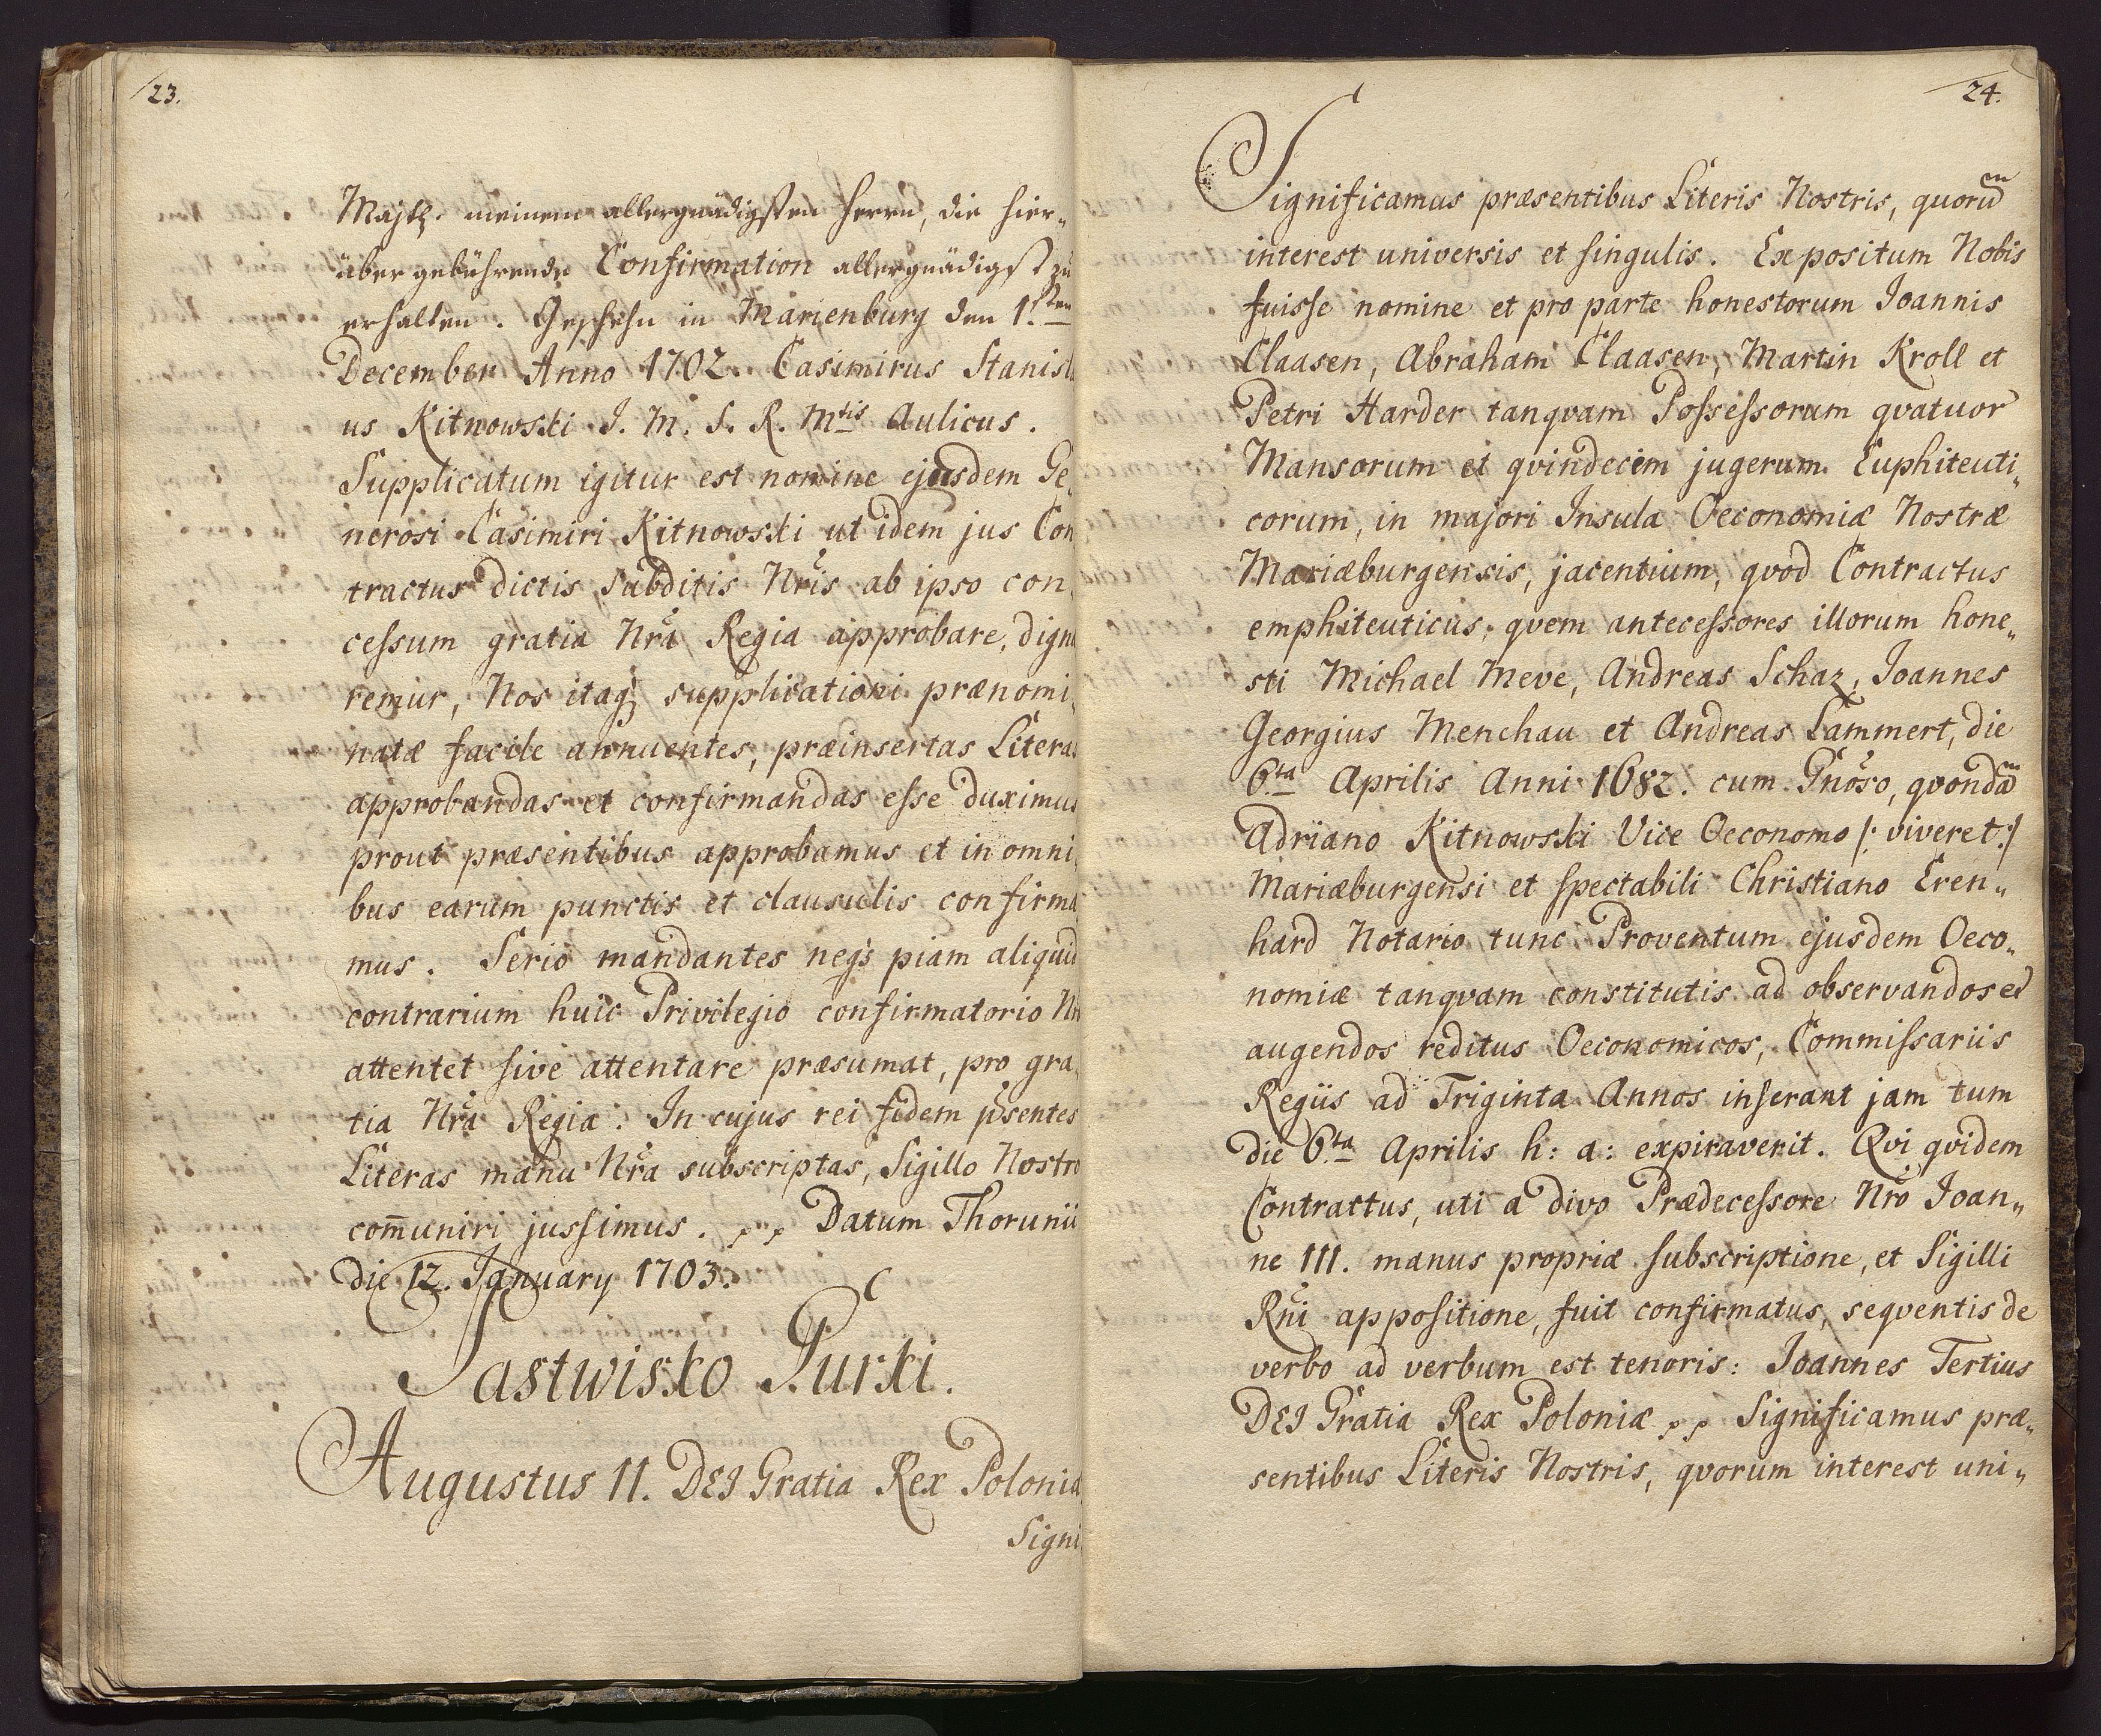 23.
Majtt. meinem allergnädigsten Herrn, die hier„
über gebührende Confirmation allergnädigst zu
erhalten. Geschehn in Marienburg den 1.sten
December Anno 1702. Casimirus Stanisla
us Kitnowski J. M. S. R. Mtis Aulicus.
Supplicatum igitur est nomine ejusdem Ge„
nerosi Casimiri Kitnowski ut idem jus Con
tractus dictis subditis Nris ab ipso con„
cessum gratia Nra Regia approbare, digna
remur, Nos itaq; supplicationi prænomi„
natæ facile annuentes, præinsertas Literas
approbandas et confirmandas esse duximus
prout præsentibus approbamus et in omni„
bus earum punctis et clausulis confirma„
mus. Serio mandantes neq; piam aliquid
contrarium huic Privilegio confirmatorio Nro
attentet sive attentare præsumat, pro gra„
tia Nra Regia. In cujus rei fidem psentes
Literas manu Nra subscriptas, Sigillo Nostro
com̄uniri jussimus. pp Datum Thorunii
die 12. January 1703.
Pastwisko Purski.
Augustus II. DEI Gratia Rex Poloniæ
Signi„
24.
Significamus præsentibus Literis Nostris, quorum
interest universis et singulis. Expositum Nobis
fuisse nomine et pro parte honestorum Joannis
Claasen, Abraham Claasen, Martin Kroll et
Petri Harder tanqvam Possessorum qvatuor
Mansorum et qvindecim jugerum Euphiteuti„
corum, in majori Insula Oeconomiæ Nostræ
Mariæburgensis, jacentium, qvod Contractus
emphiteuticus, qvem antecessores illorum hone„
sti Michael Meve, Andreas Schaz, Joannes
Georgius Menchau et Andreas Lammert, die
6.ta Aprilis Anni 1682. cum Gnoso, qvondam
Adriano Kitnowski Vice Oeconomo /: viveret :/
Mariæburgensi et spectabili Christiano Eren„
hard Notario tunc Proventum ejusdem Oeco„
nomiæ tanqvam constitutis ad observandos et
augendos reditus Oeconomicos, Commissariis
Regiis ad Triginta Annos inserant jam tum
die 6.ta Aprilis h: a: expiraverit. Qvi qvidem
Contractus, uti a divo Prædecessore Nro Joan„
ne III. manus propriæ subscriptione, et Sigilli
Rni appositione, fuit confirmatus, seqventis de
verbo ad verbum est tenoris: Joannes Tertius
DEI Gratia Rex Poloniæ pp Significamus præ„
sentibus Literis Nostris, qvorum interest uni„